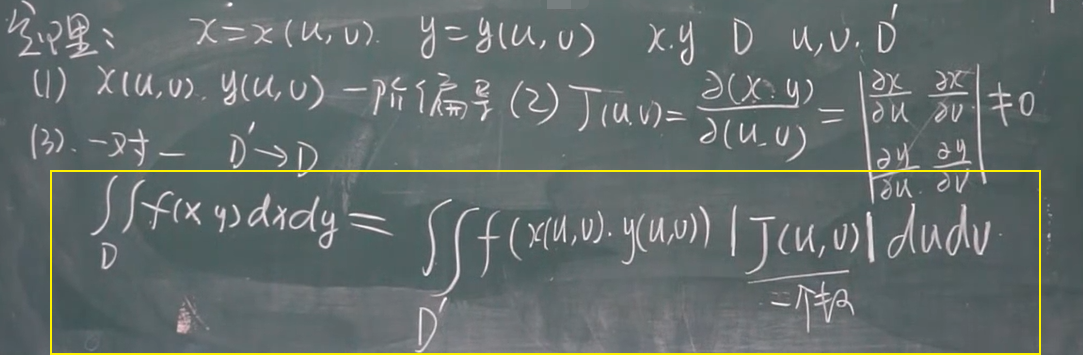 定理： x=x(u,v). y=y(u,v) x.y D u,v. D'
(1) x(u,v). y(u,v) 一阶偏导 (2) J(u,v)= ∂(x.y)/∂(u,v) = |∂x/∂u ∂x/∂v ∂y/∂u. ∂y/∂v| ≠0
(3). 一对一 D'→D
∬_D f(x y)dxdy= ∬_D' f(x(u,v).y(u,v)) |J(u,v)| dudv.